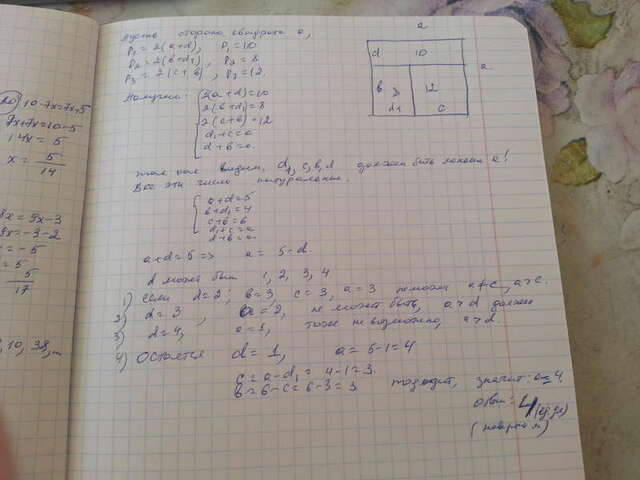 Пусть сторона квадрата a,
P₁ = 2(a+d), P₁ = 10
P₂ = 2(b+d₁), P₂ = 8
P₃ = 2(c+b), P₃ = 12.
a
d 10
a
b 8 12
d₁ c
Получаем:
2(a+d)=10
2(b+d₁)=8
2(c+b)=12
d₁+c=a
d+b=a.
видим, d₁, c, b, d должен быть меньше a!
Все эти числа натуральные.
a+d=5
b+d₁=4
c+b=6
d₁+c=a
d+b=a
a+d=5 => a = 5-d.
d может быть 1, 2, 3, 4.
1) Если d=2; b=3, c=3, a=3 a≠c, a>c.
2) d=3, a=2, не может быть, a>d должен
3) d=4, a=1, тоже невозможно, a>d.
4) Остается d=1, a=5-1=4
c=a-d₁=4-1=3.
b=6-c=6-3=3. подходит, значит: a=4.
Ответ: 4 (ед.)
20) 10-7x=7x+5
7x+7x=10-5
14x=5
x=5/14
8x=9x-3
9x=-3-2
=-5
=5
5
17
, 10, 38,...